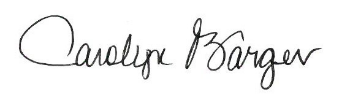 Carolyn Barger